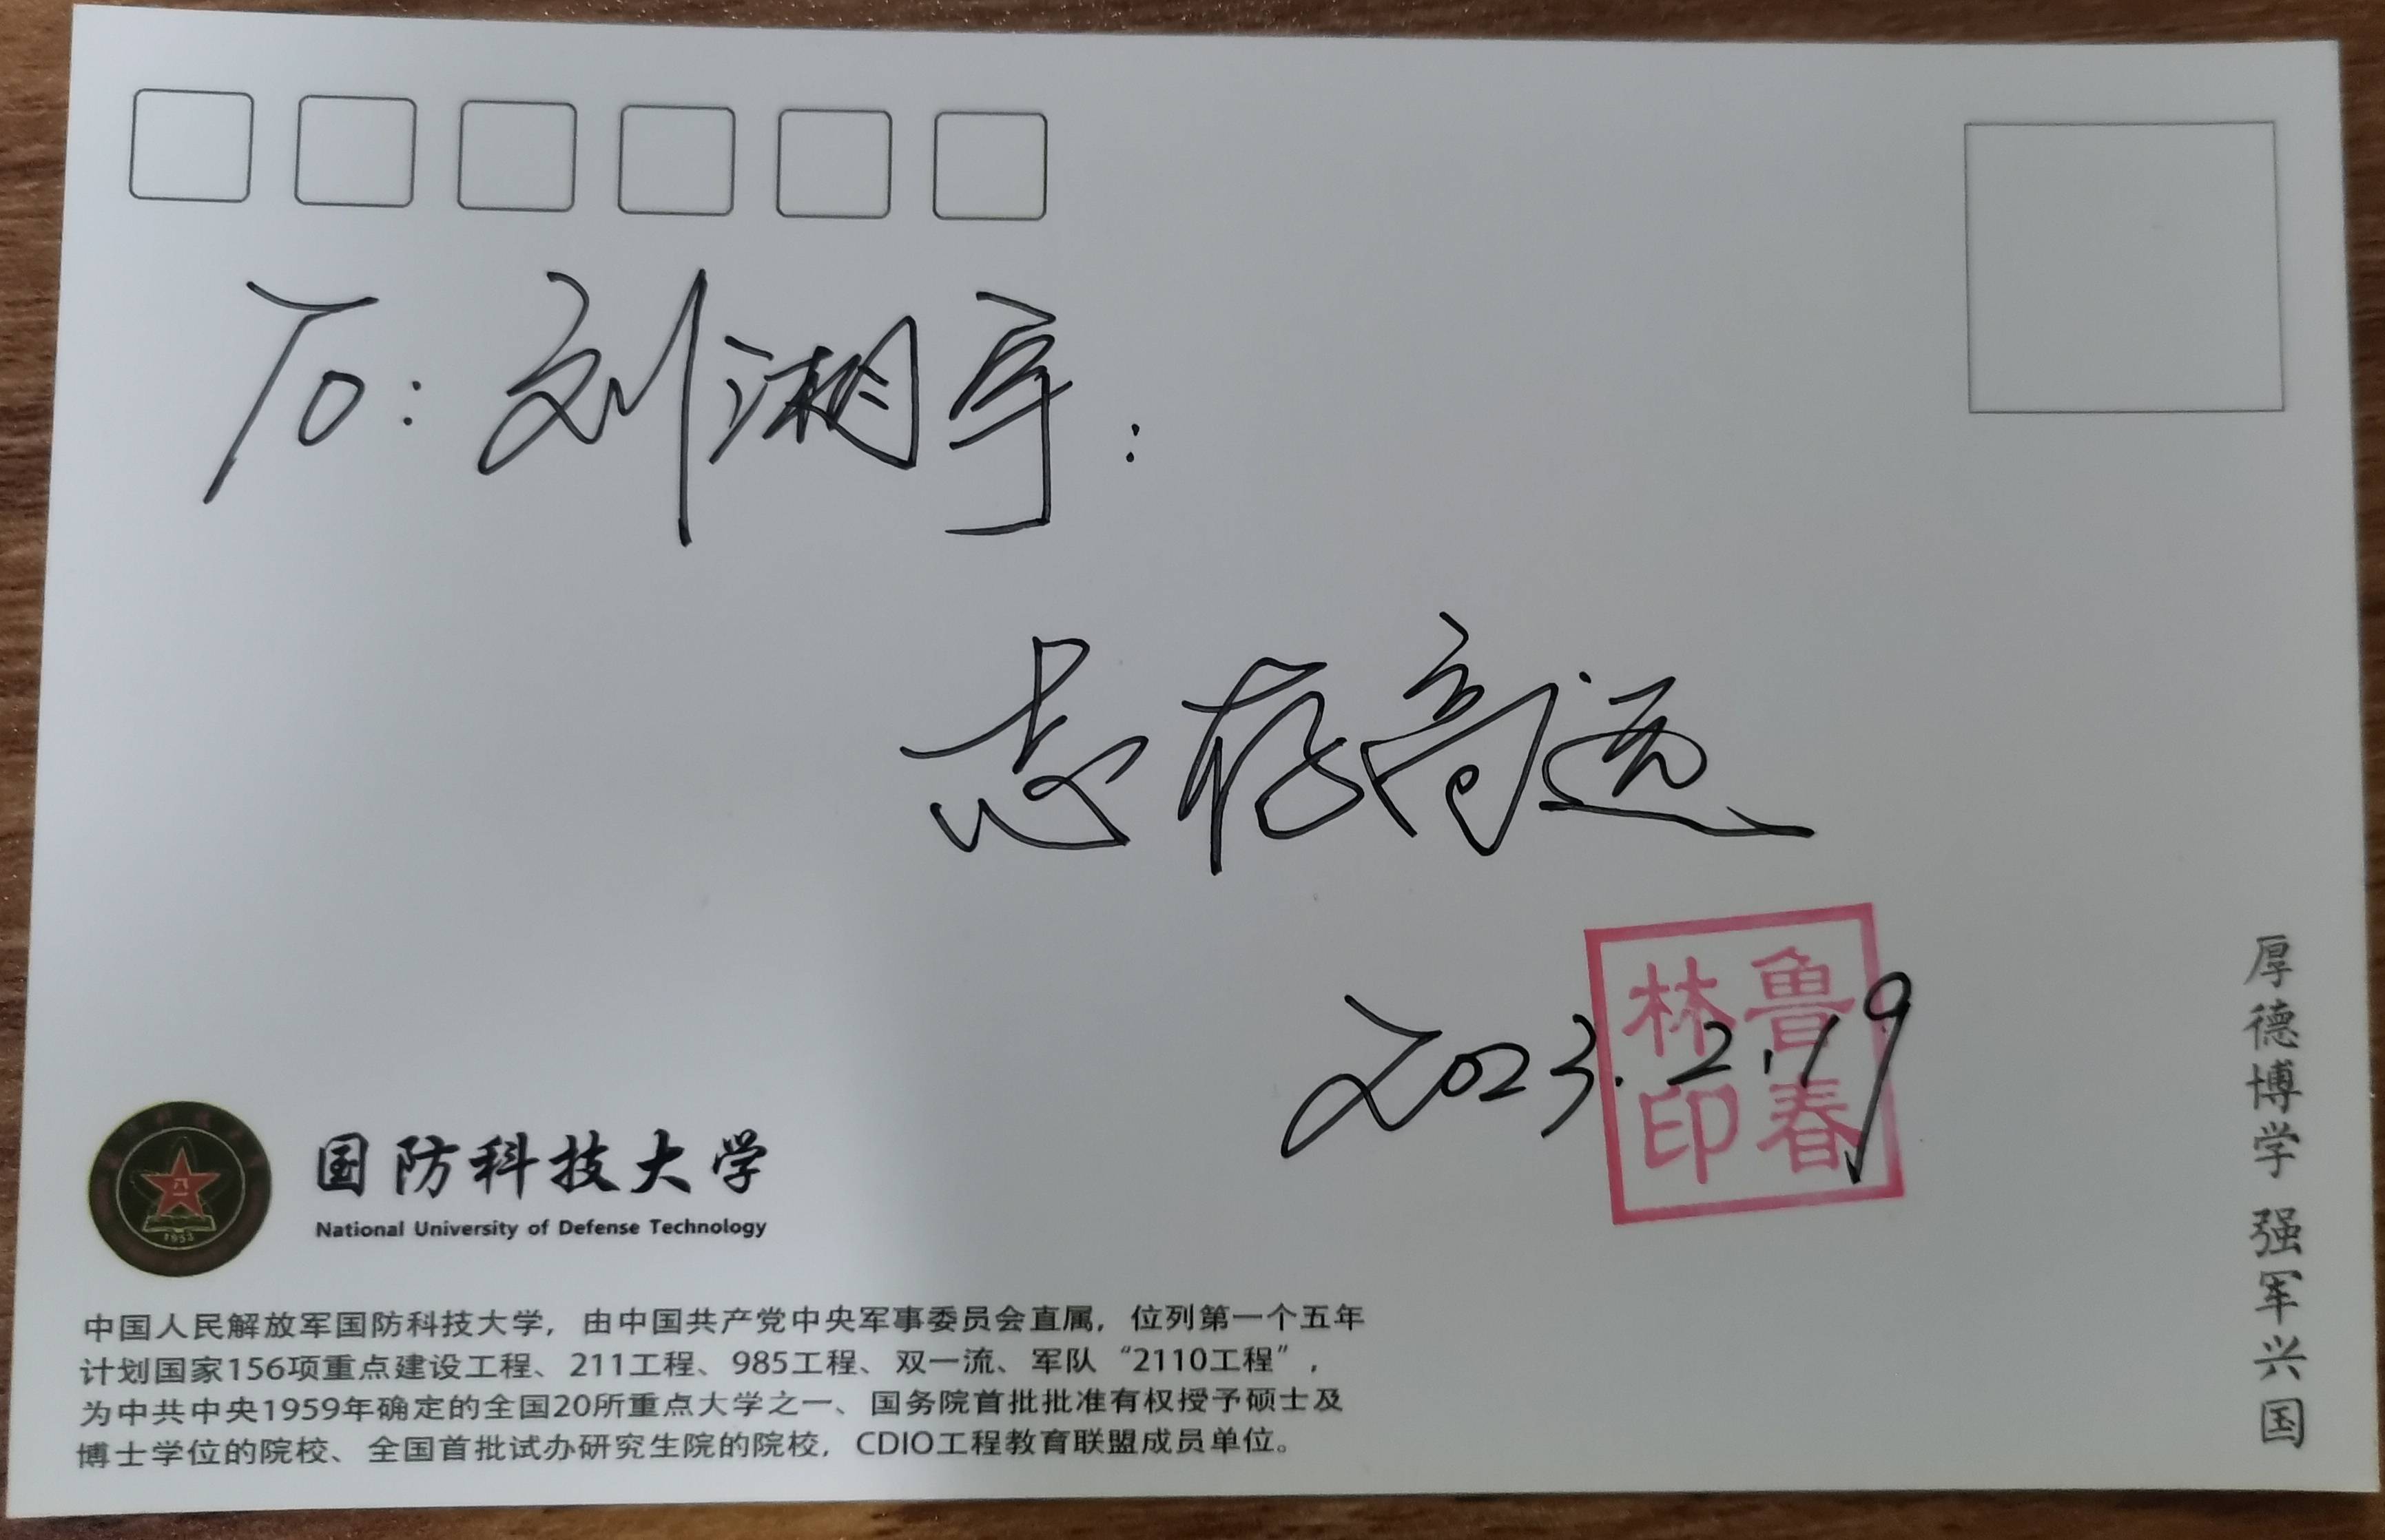 To: 刘湘宇:
志存高远
2023.2.19
鲁春林印
国防科技大学
National University of Defense Technology
1953
中国人民解放军国防科技大学，由中国共产党中央军事委员会直属，位列第一个五年
计划国家156项重点建设工程、211工程、985工程、双一流、军队“2110工程”，
为中共中央1959年确定的全国20所重点大学之一、国务院首批批准有权授予硕士及
博士学位的院校、全国首批试办研究生院的院校，CDIO工程教育联盟成员单位。
厚德博学 强军兴国